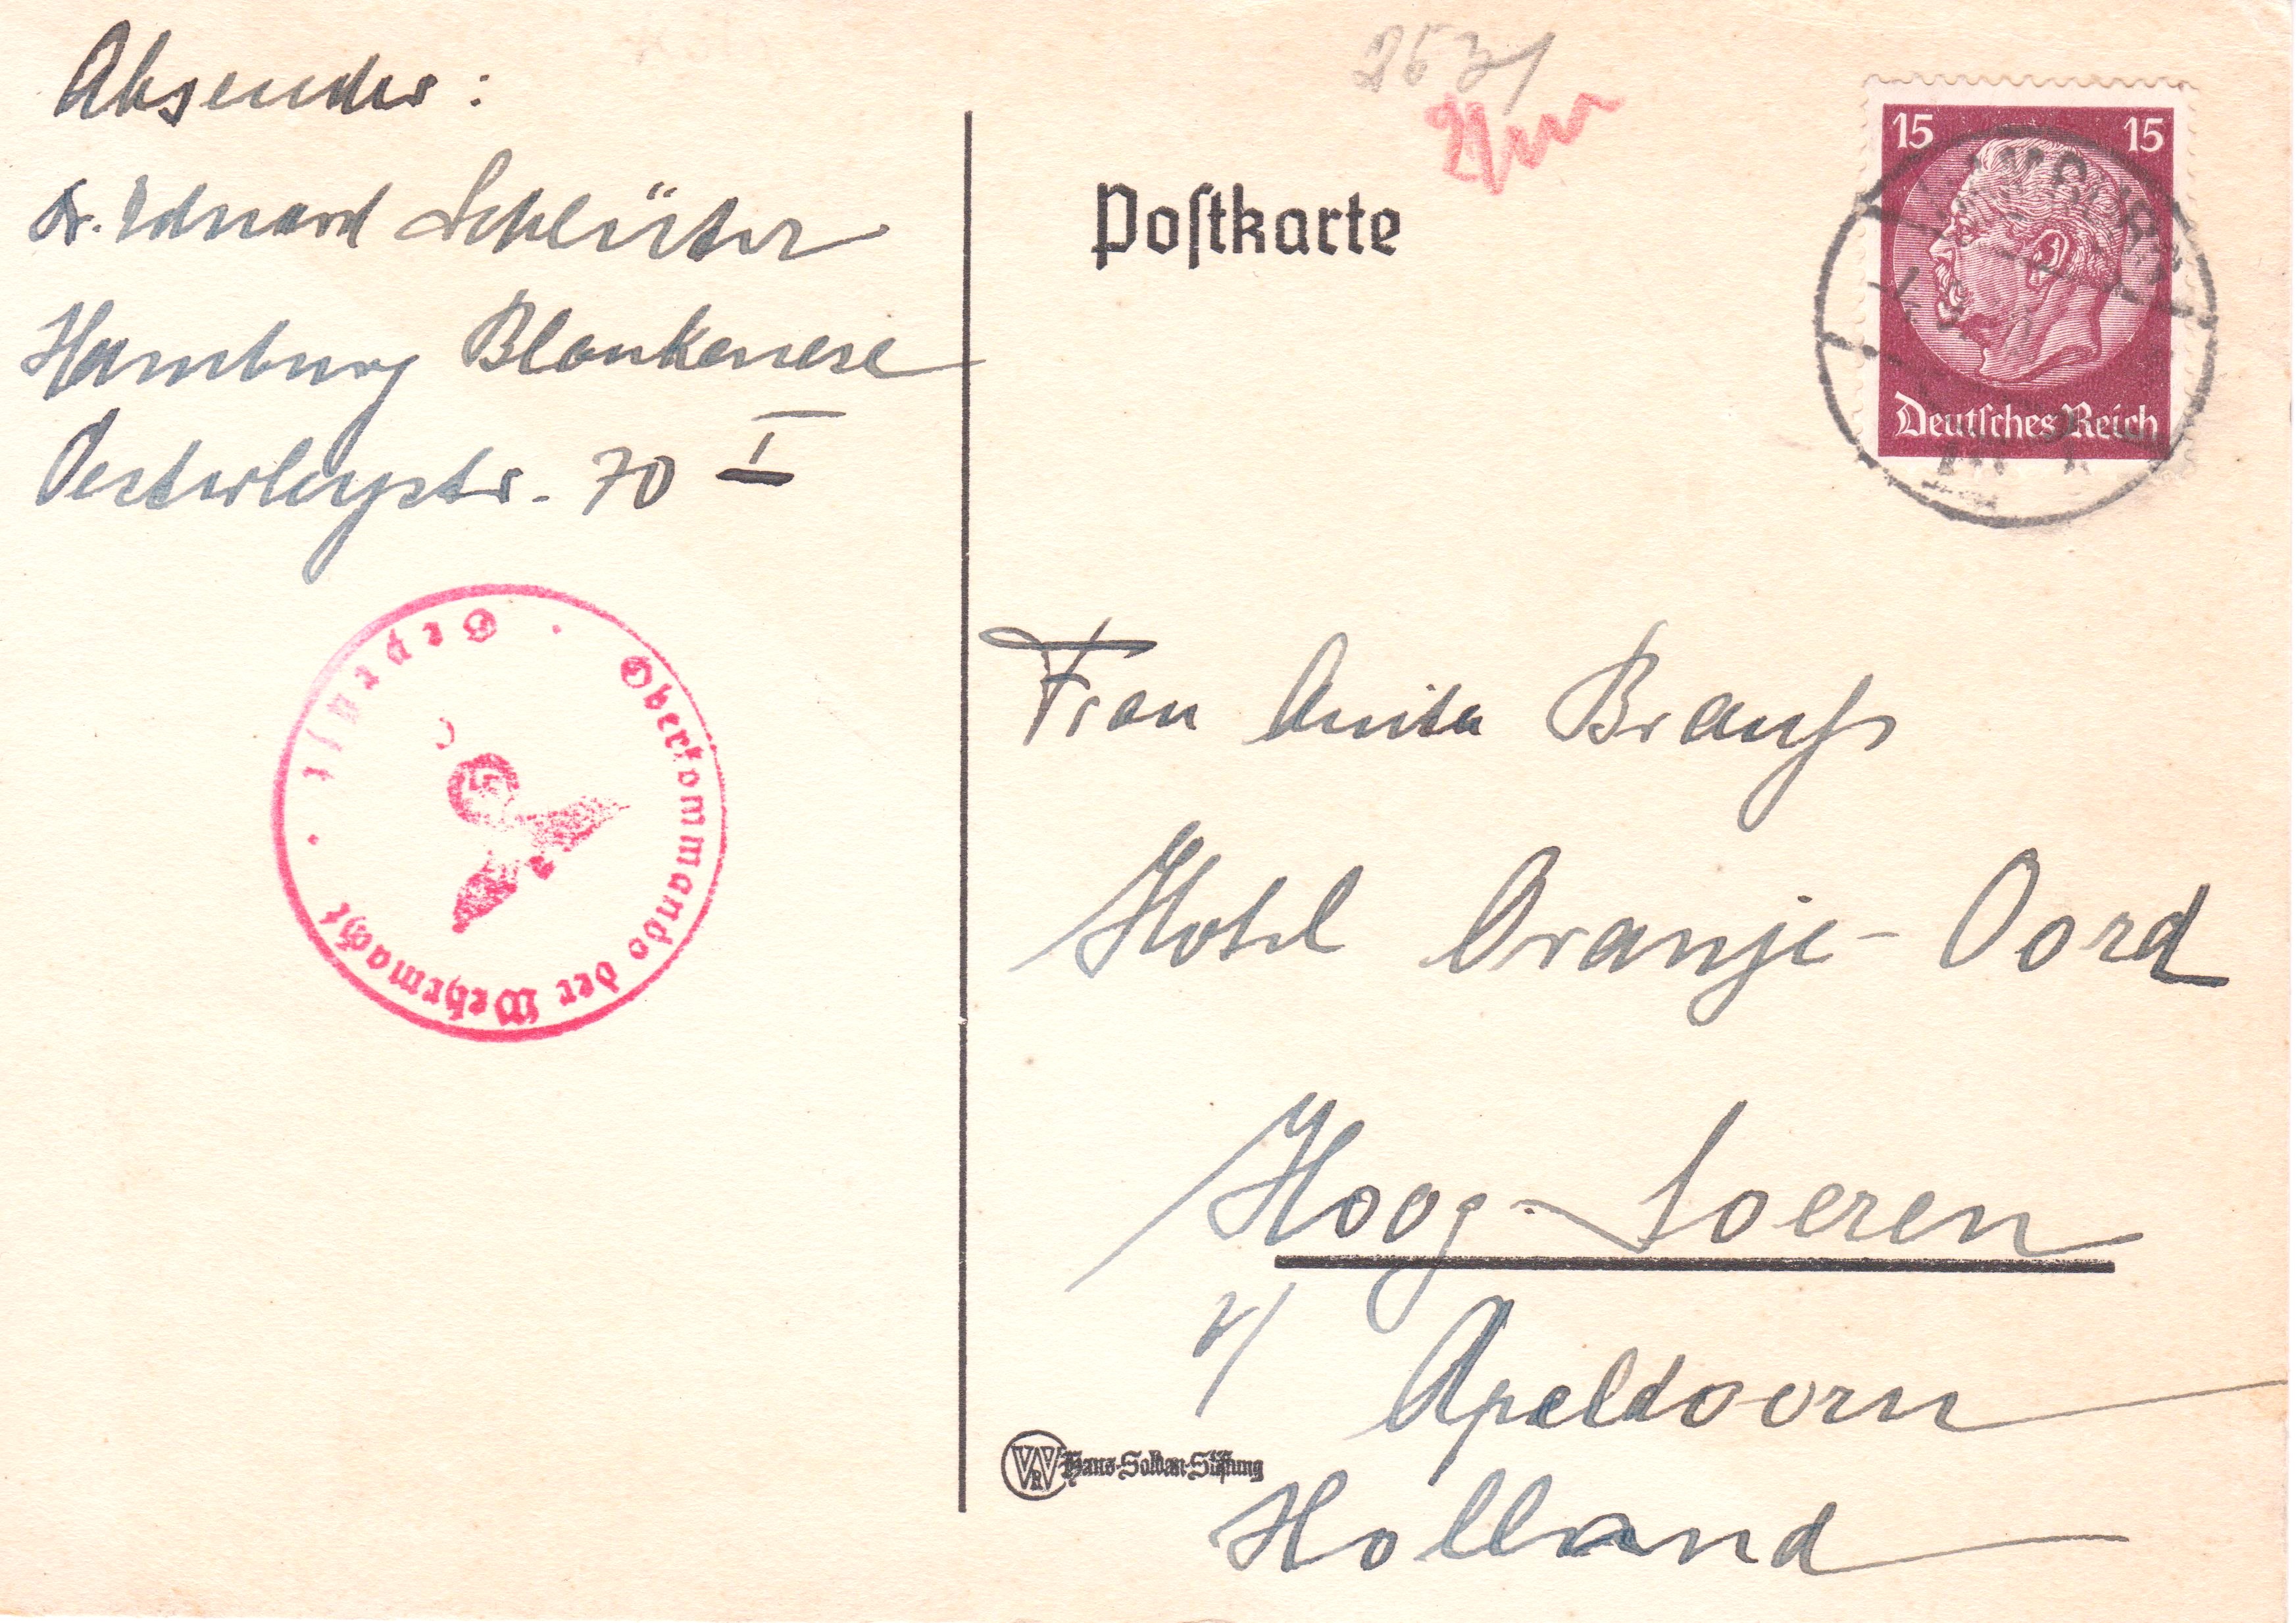 Absender:
Dr. Eduard Schlüter
Hamburg Blankenese
Oesterleystr. 70 I
Postkarte
15 15
Deutsches Reich
Geprüft
Oberkommando der Wehrmacht
Frau Anita Brauß
Hotel Oranje-Oord
Hoog-Soeren
b/ Apeldoorn
Holland
Hans-Soldan-Stiftung